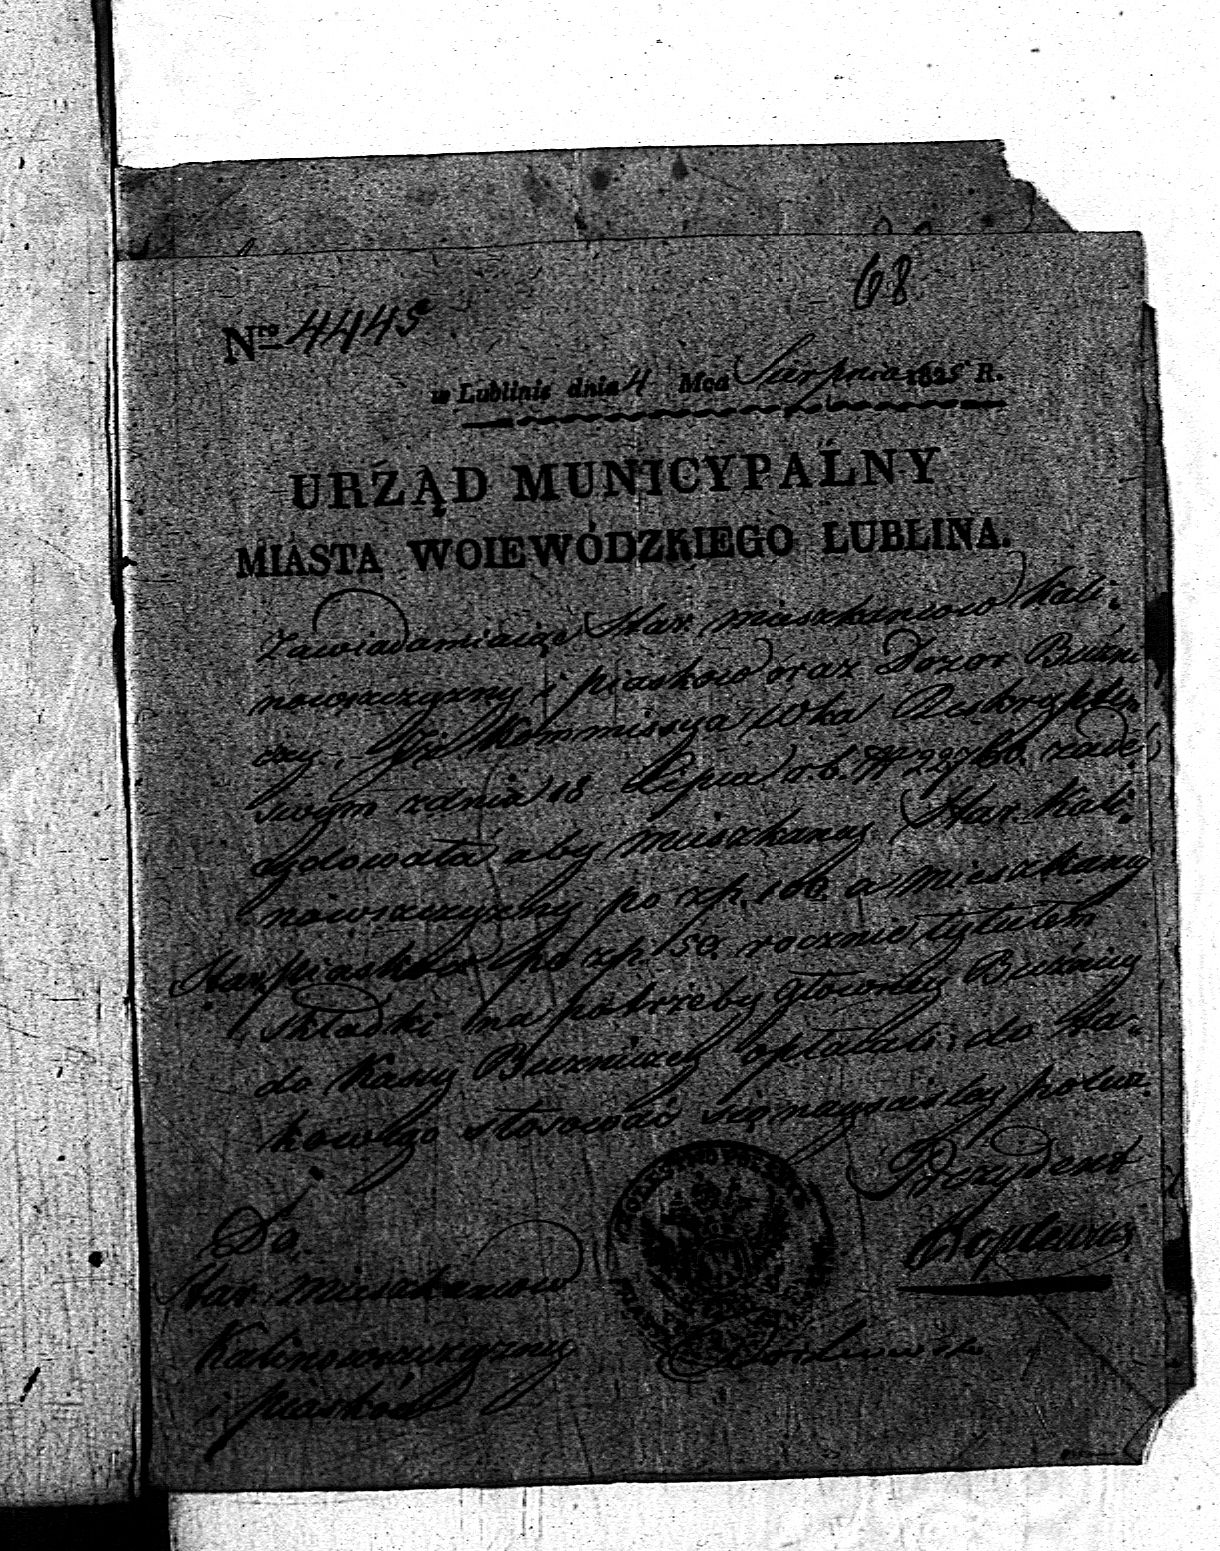 68
Nro 4445
w Lublinie dnia 4 Mca Sierpnia 1825 R.
URZĄD MUNICYPALNY
MIASTA WOIEWÓDZKIEGO LUBLINA.
Zawiadamiaiąc Star. mieszkańców Kali-
nowszczyzny i piasków oraz Dozor Bużni
czy, iż Kommissya Wka Reskryptem
swym z dnia 18 Lipca r. b. zade-
cydowała aby mieszkańcy Star. Kali-
nowszczyzny po zp. 100 a mieszkańcy
Star. Piasków po zp. 50 rocznie tytułem
składki na potrzeby główney Bużnicy
do Kassy Bużniczey opłacali, do ta-
kowego stosować się mayą
Prezydent
Do
Star. Mieszkańców
Kalinowszczyzny
i piasków